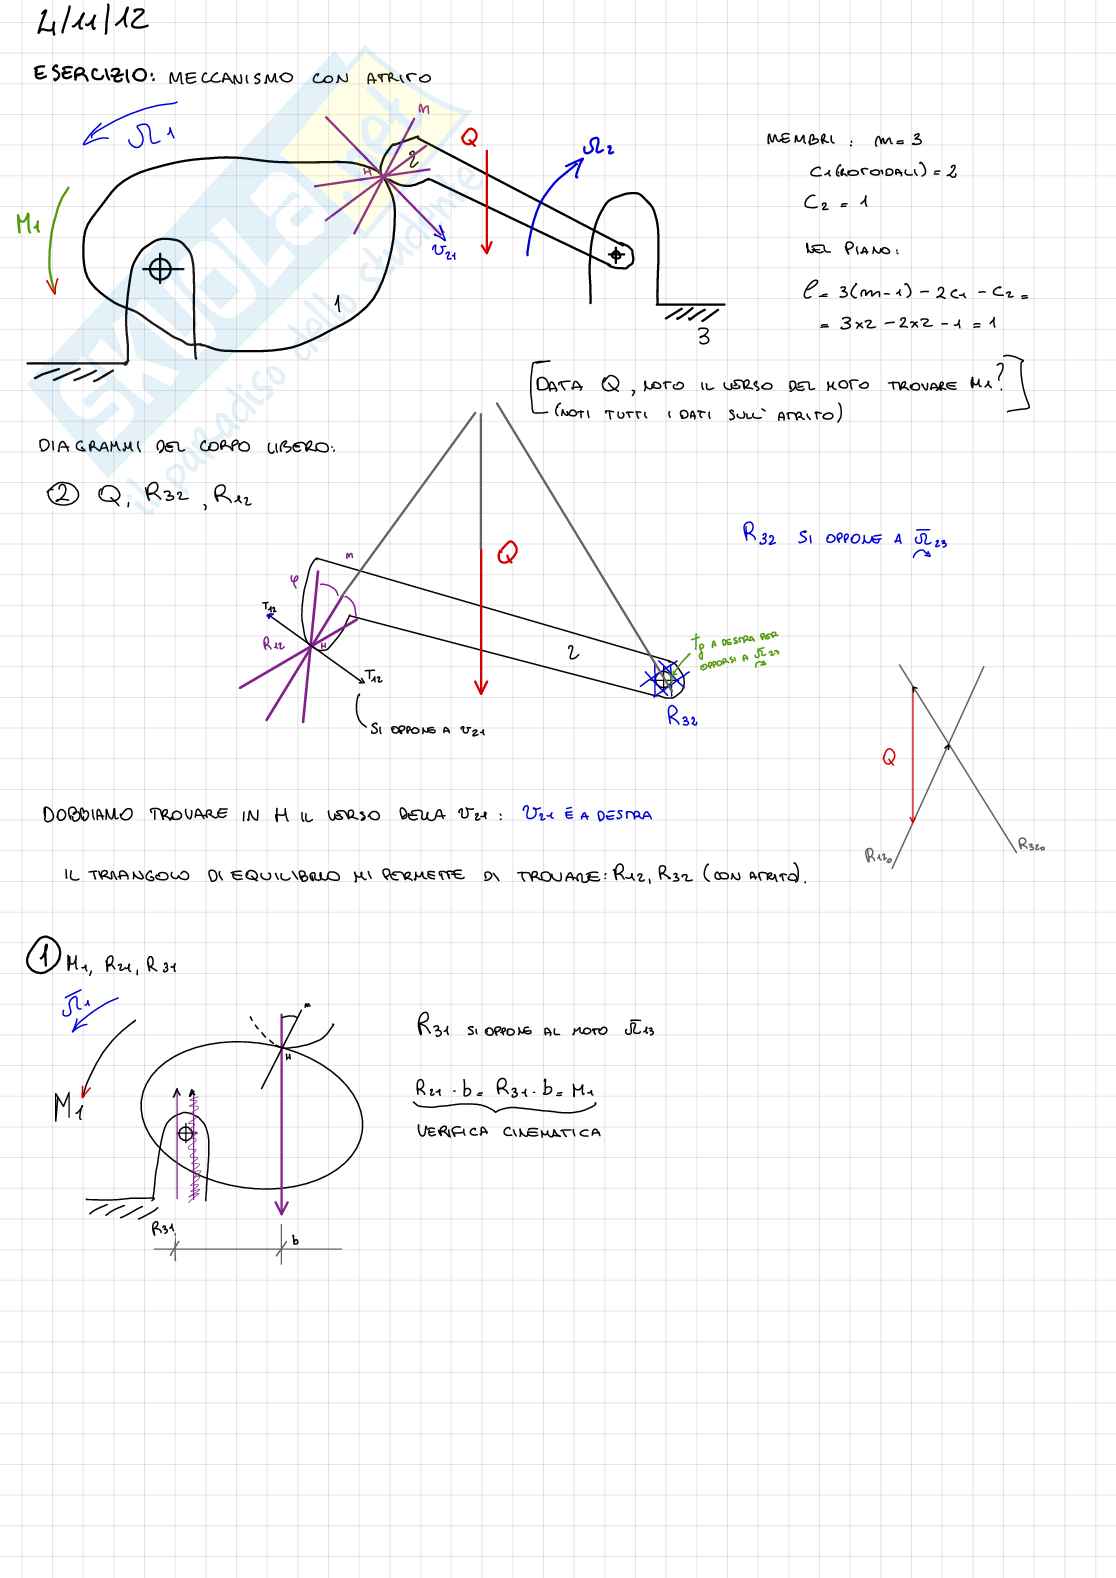 4/11/12
ESERCIZIO: MECCANISMO CON ATRITO
Ω1
M1
H
m
2
v21
Q
Ω2
1
3
MEMBRI : m=3
C1(ROTOIDALI) = 2
C2 = 1
NEL PIANO:
l = 3(m-1) - 2C1 - C2 =
= 3x2 - 2x2 - 1 = 1
[DATA Q, NOTO IL VERSO DEL MOTO TROVARE M1?
(NOTI TUTTI I DATI SULL' ATRITO)]
DIAGRAMMI DEL CORPO LIBERO:
② Q, R32, R12
R32 SI OPPONE A Ω̅23
Q
m
φ
T12
R12
H
T12
SI OPPONE A v21
2
R32
tg A DESTRA PER
OPPORSI A Ω̅23
Q
R12o
R32o
DOBBIAMO TROVARE IN H IL VERSO DELLA v21 : v21 È A DESTRA
IL TRIANGOLO DI EQUILIBRIO MI PERMETTE DI TROVARE: R12, R32 (CON ATRITO).
① M1, R21, R31
Ω̅1
M1
H
R31
b
R31 SI OPPONE AL MOTO Ω̅13
R21 · b = R31 · b = M1
VERIFICA CINEMATICA
SKUOLA.net
il paradiso dello studente